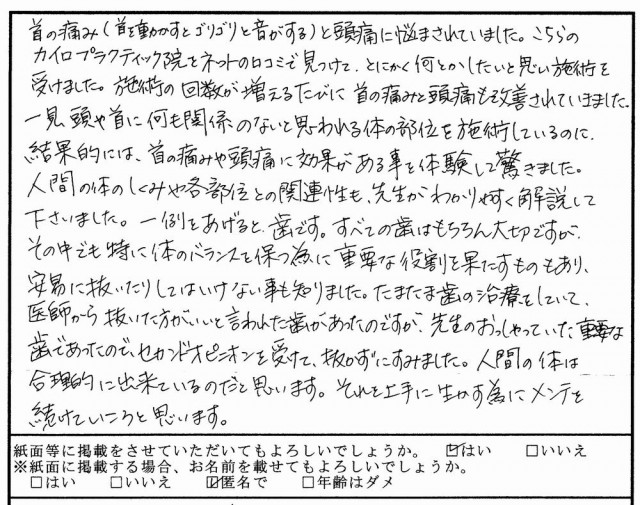 首の痛み(首を動かすとゴリゴリと音がする)と頭痛に悩まされていました。こちらの
カイロプラクティック院をネットの口コミで見つけて、とにかく何とかしたいと思い施術を
受けました。施術の回数が増えるたびに首の痛みと頭痛も改善されていきました。
一見、頭や首に何も関係のないと思われる体の部位を施術しているのに、
結果的には、首の痛みや頭痛に効果がある事を体験して驚きました。
人間の体のしくみや各部位との関連性も、先生がわかりやすく解説して
下さいました。一例をあげると、歯です。すべての歯はもちろん大切ですが、
その中でも特に体のバランスを保つ為に重要な役割を果たすものもあり、
安易に抜いたりしてはいけない事も知りました。たまたま歯の治療をしていて、
医師から抜いた方がいいと言われた歯があったのですが、先生のおっしゃっていた重要な
歯であったので、セカンドオピニオンを受けて、抜かずにすみました。人間の体は
合理的に出来ているのだと思います。それを上手に生かす為にメンテを
続けていこうと思います。
紙面等に掲載をさせていただいてもよろしいでしょうか。 ☑はい □いいえ
※紙面に掲載する場合、お名前を載せてもよろしいでしょうか。
□はい □いいえ ☑匿名で □年齢はダメ